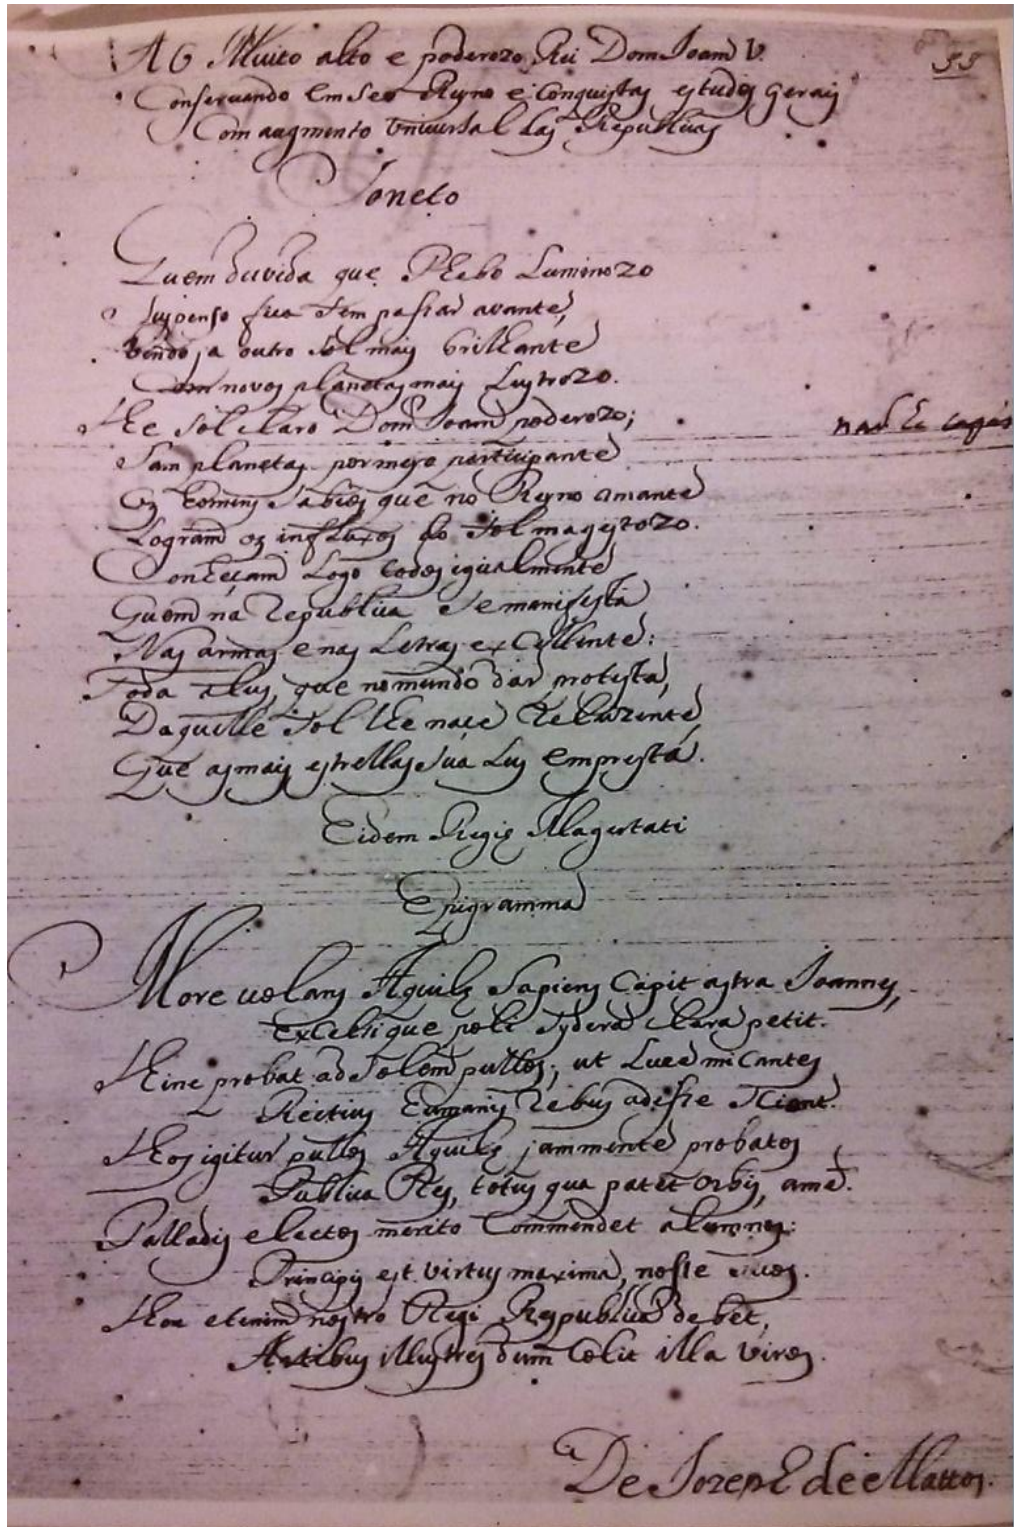 55
Ao Muito alto e poderozo Rei Dom Joam V.
Conseruando em seo Reyno e Conquistas estudos gerais
Com augmento Vniuersal das Republicas
Soneto
Quem duvida que Phebo Luminozo
Suspenso fica sem passar avante,
Vendo ja outro Sol mais brilhante
Com novos planetas mais Lustrozo.
He Sol claro Dom Joam poderozo;
nao he capás
Sam planetas por meyo participante
Os homens sabios que no Reyno amante
Logram os influxos do Sol magestozo.
Conheçam Logo todos igualmente
Quem na Republica se manifesta
Nas armas e nas Letras excellente:
Toda a lus, que no mundo dar protesta,
Daquelle Sol lhe nace Reluzente,
Que as mais estrellas sua Lus empresta.
Eidem Regiæ Magestati
Epigramma
More uolans Aquilę Sapiens Capit astra Joannes,
Excelsique poli Sydera clara petit.
Hinc probat ad Solem pullos, ut Luce micantes
Rectius humanis rebus adesse sciant.
Hos igitur pullos Aquilę jam mente probatos
Publica Res, totus qua patet Orbis, amet.
Palladis electos merito Commendet alumnos:
Principis est virtus maxima, nosse suos.
Hoc etenim nostro Regi Respublica debet,
Artibus illustres dum Colit illa viros.
De Jozeph de Mattos.